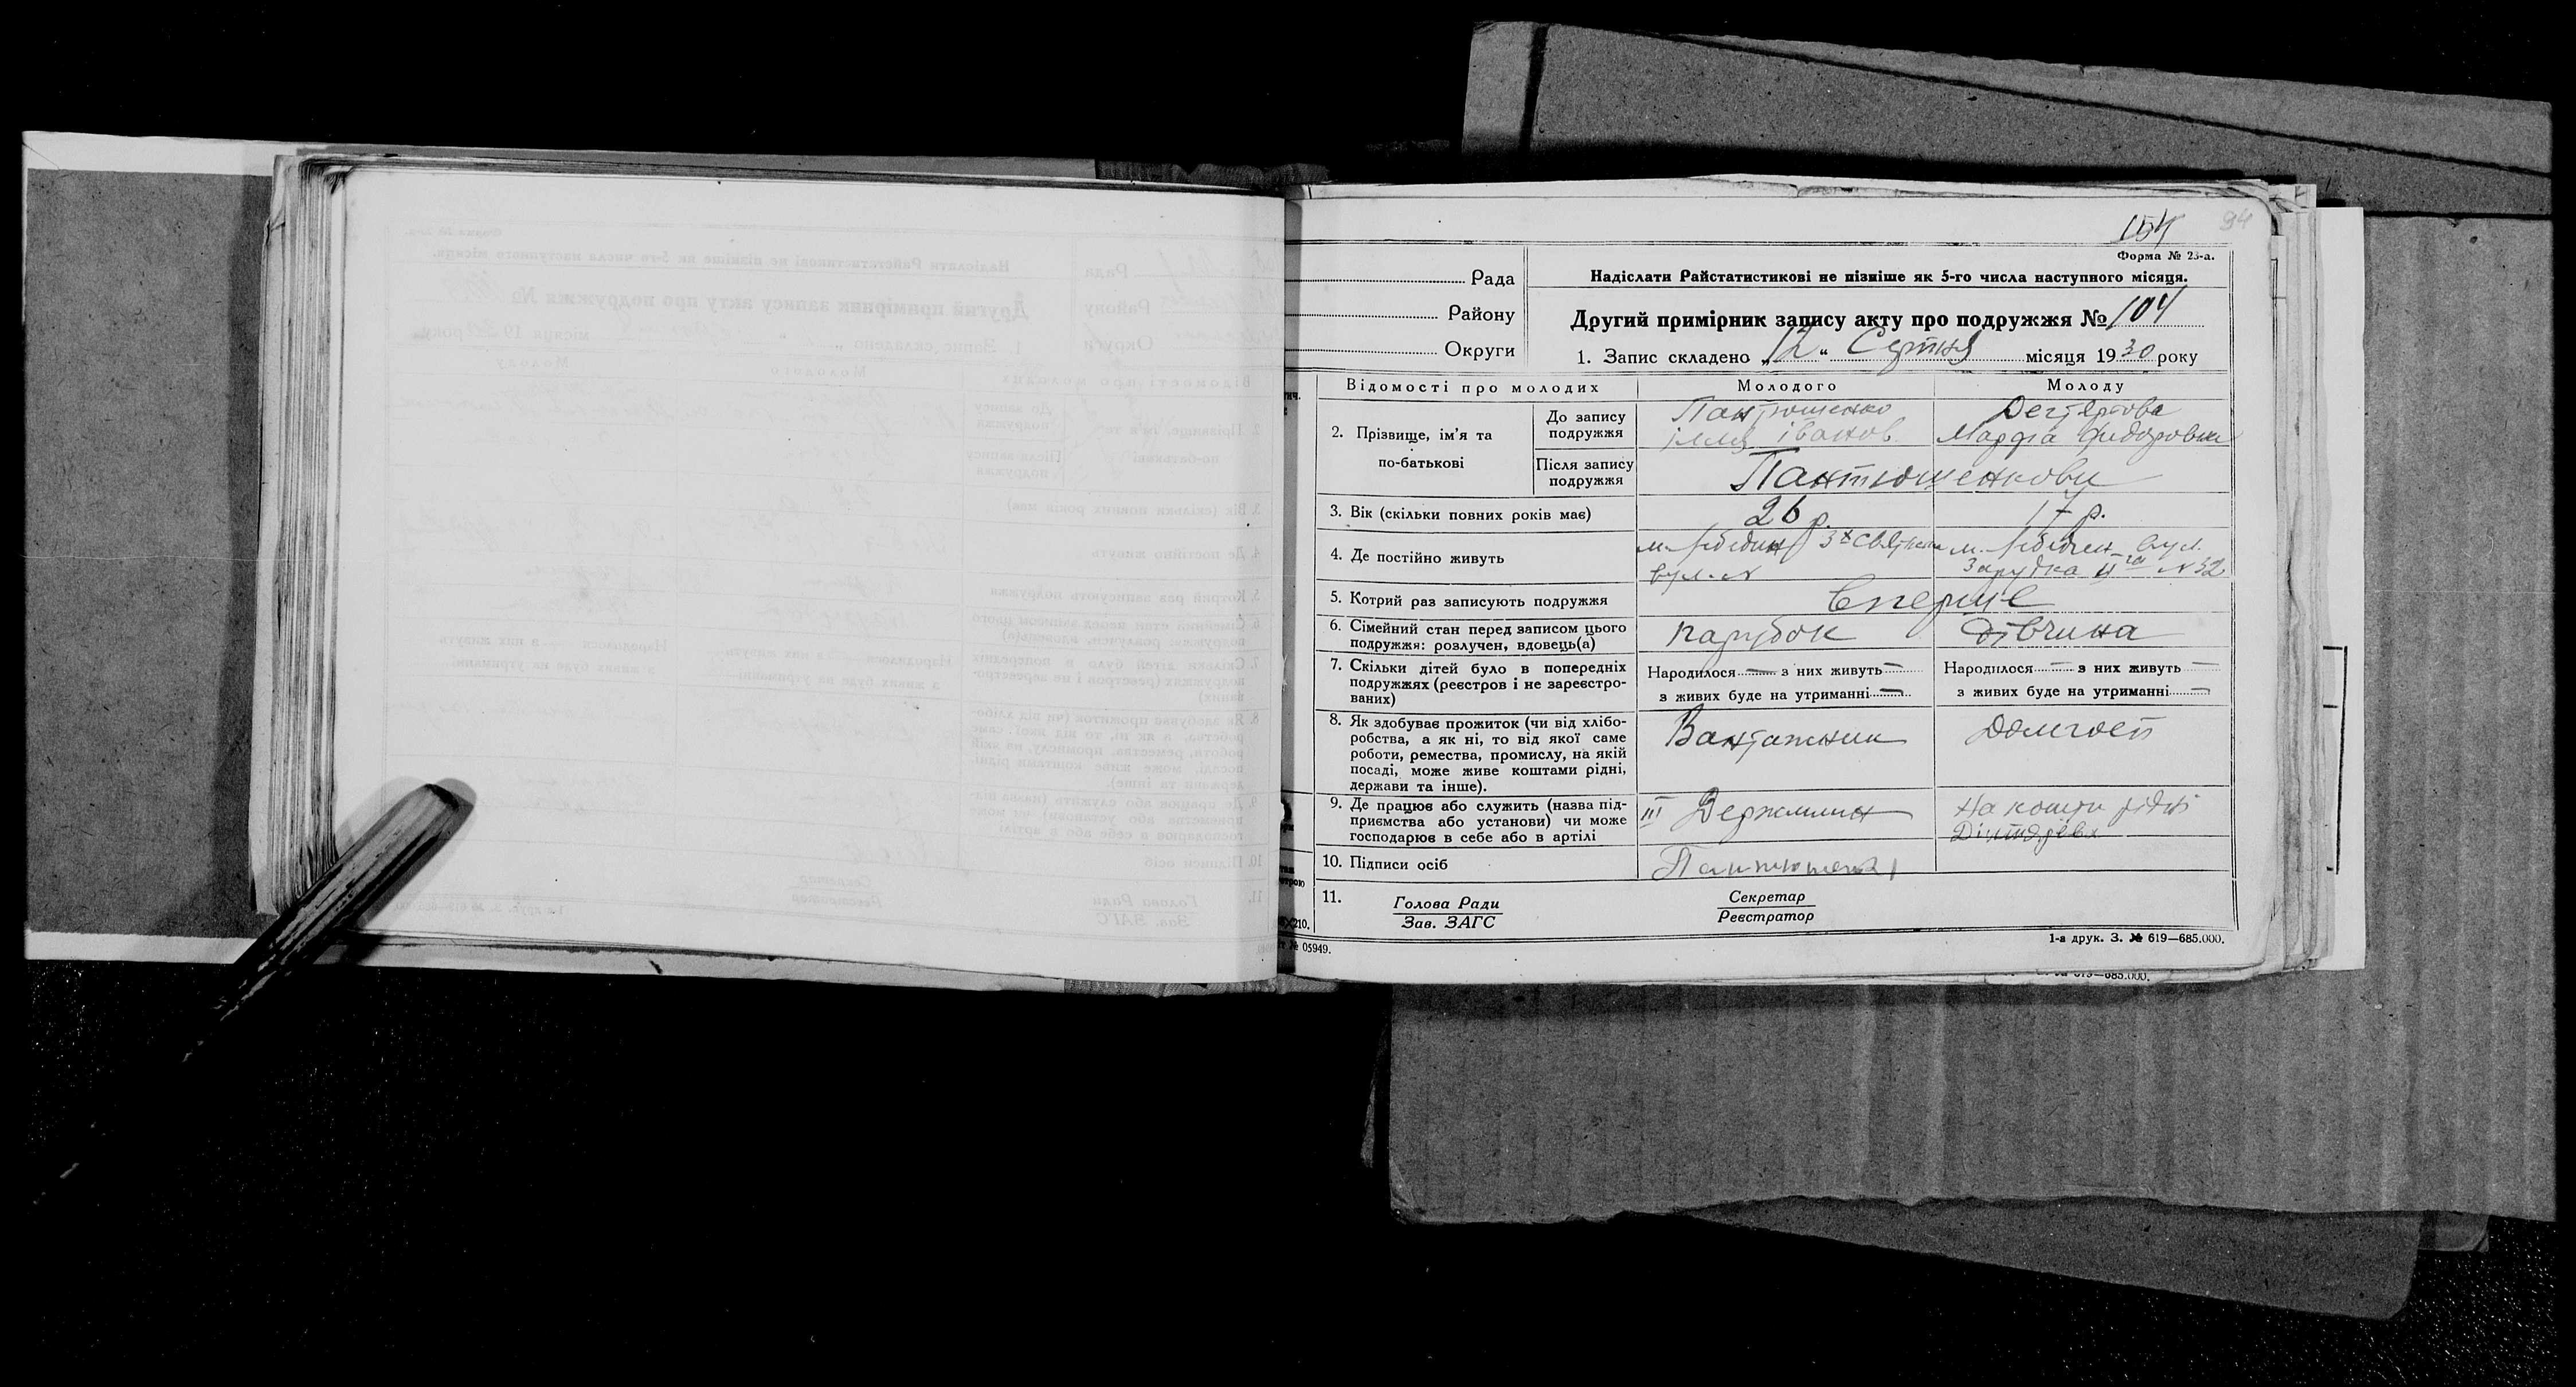 154 94
Форма № 23-а.
Рада
Надіслати Райстатистикові не пізніше як 5-го числа наступного місяця.
Району
Другий примірник запису акту про подружжя № 104
Округи
1. Запис складено „12“ Серпня місяця 1930 року
Відомості про молодих Молодого Молоду
2. Прізвище, ім'я та по-батькові
До запису подружжя
Пантюшенко
Ілля Іванов.
Дегтярьова
Марфа Федоровна
Після запису подружжя
Пантюшенкови
3. Вік (скільки повних років має) 26 р. 17 р.
4. Де постійно живуть
м. Лебедин 3х Святит
вул. №
м. Лебедин вул.
Зарудка ІІ га № 32
5. Котрий раз записують подружжя Вперше
6. Сімейний стан перед записом цього
подружжя: розлучен, вдовець(а)
парубок дівчина
7. Скільки дітей було в попередніх
подружжях (реєстров і не зареєстро-
ваних)
Народилося — з них живуть —
з живих буде на утриманні —
Народилося — з них живуть —
з живих буде на утриманні —
8. Як здобуває прожиток (чи від хлібо-
робства, а як ні, то від якої саме
роботи, ремества, промислу, на якій
посаді, може живе коштами рідні,
держави та інше).
Вантажник
Домгосп
9. Де працює або служить (назва під-
приємства або установи) чи може
господарює в себе або в артілі
ІІІ Держмлин
На кошти рідні
10. Підписи осіб
11.
Голова Ради
Зав. ЗАГС
Секретар
Реєстратор
210.
№ 05949.
1-а друк. З. № 619—685.000.
619—685.000.